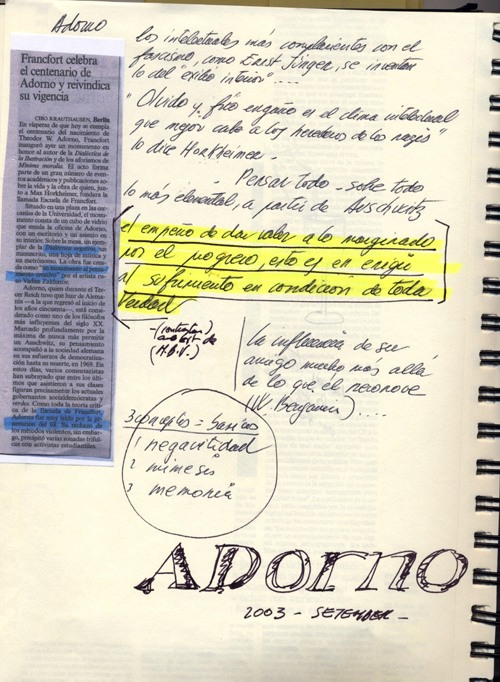 Adorno
Francfort celebra
el centenario de
Adorno y reivindica
su vigencia
CIRO KRAUTHAUSEN, Berlín
En vísperas de que hoy se cumpla
el centenario del nacimiento de
Theodor W. Adorno, Francfort
inauguró ayer un monumento en
honor al autor de la Dialéctica de
la Ilustración y de los aforismos de
Minima moralia. El acto forma
parte de un gran número de even-
tos académicos y publicaciones so-
bre la vida y la obra de quien, junto
a Max Horkheimer, fundara la
llamada Escuela de Francfort.
Situado en una plaza en las cer-
canías de la Universidad, el monu-
mento consta de un cubo de vidrio
que emula la oficina de Adorno,
con un escritorio y un asiento en
su interior. Sobre la mesa, un ejem-
plar de la Dialéctica negativa, un
manuscrito, una hoja de música y
un metrónomo. La obra fue con-
cebida como "un monumento al pensa-
miento creativo" por el artista ru-
so Vadim Zakharov.
Adorno, quien durante el Ter-
cer Reich tuvo que huir de Alema-
nia —a la que regresó al inicio de
los años cincuenta—, está consi-
derado como uno de los filósofos
más influyentes del siglo XX.
Marcado profundamente por la
máxima de nunca más permitir
un Auschwitz, su pensamiento
acompañó a la sociedad alemana
en sus esfuerzos de democratiza-
ción hasta su muerte, en 1969. En
estos días, varios comentaristas
han subrayado que entre los últi-
mos que asistieron a sus clases
figuran precisamente los actuales
gobernantes socialdemócratas y
verdes. Como toda la teoría críti-
ca de la Escuela de Francfort,
Adorno fue muy leído por la ge-
neración del 68. Su rechazo de
los métodos violentos, sin embar-
go, precipitó varias sonadas trifúl-
cas con activistas estudiantiles.
los intelectuales más complacientes con el
fascismo, como Ernst Jünger, se inventan
lo del "exilio interior"....
"Olvido y frío engaño es el clima intelectual
que mejor cubre a los herederos de los nazis"
lo dice Horkheimer.
Pensar todo - sobre todo
lo más elemental, a partir de Auschwitz
el empeño de dar valor a lo marginado
por el progreso, esto es en erigir
al sufrimiento en condición de toda
verdad
La influencia de su
amigo mucho más allá
de lo que el reconoce
(W. Benjamin)....
3 conceptos = basicos
1 negatividad
2 mimesis
3 memoria
ADorno
2003 - SETEMBER -